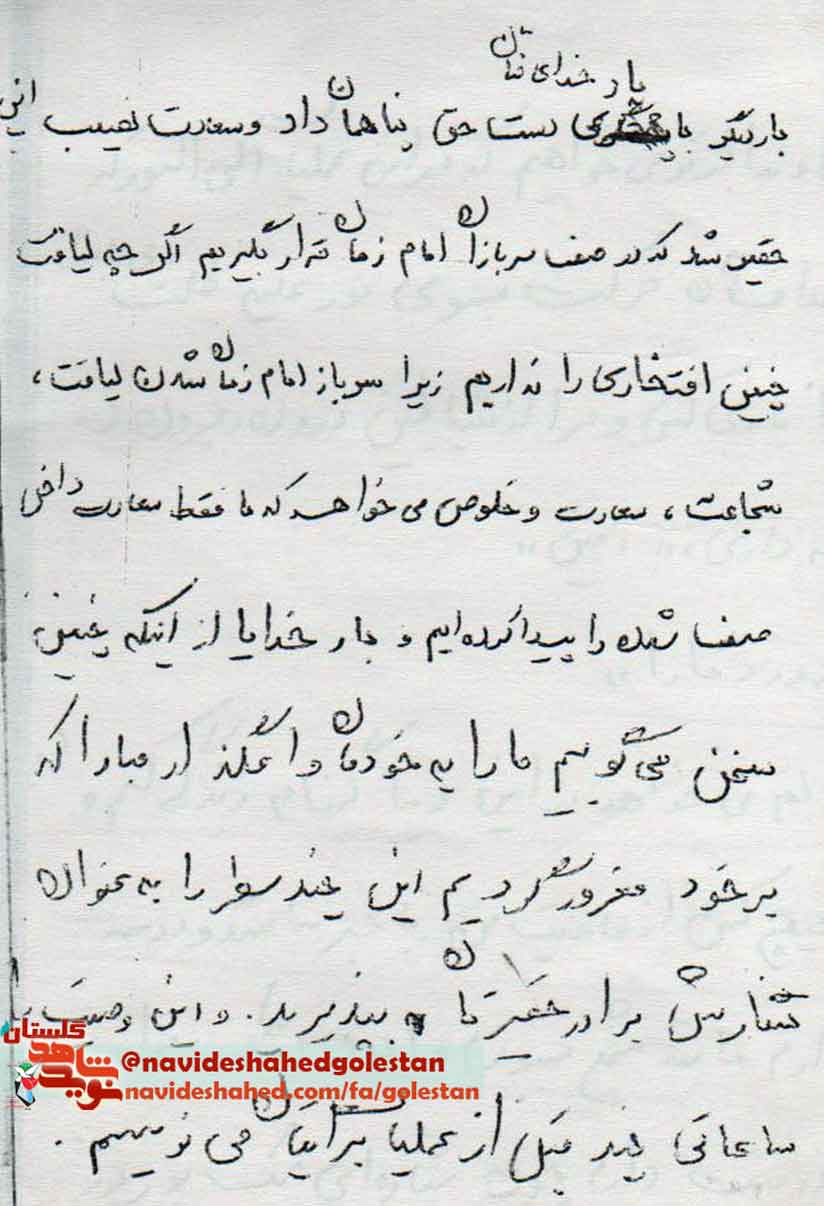 یار خدای منان
بار دیگر با دست حق پناهمان داد و سعادت نصیب این
حقیر شد که در صف سربازان امام زمان قرار گیریم اگر چه لیاقت
چنین افتخاری را نداریم زیرا سرباز امام زمان شدن لیاقت،
شجاعت، سعادت و خلوص می خواهد که ما فقط سعادت داخل
صف شدن را پیدا کرده ایم و بار خدایا از اینکه چنین
سخن می گوییم ما را به خودمان وا مگذار مبادا که
بر خود مغرور گردیم این چند سطر را به عنوان
سفارش برادر حقیرتان بپذیرید. و این وصیت
ساعاتی چند قبل از عملیات برایتان می نویسم.
گلستان
نوید شاهد
@navideshahedgolestan
navideshahed.com/fa/golestan